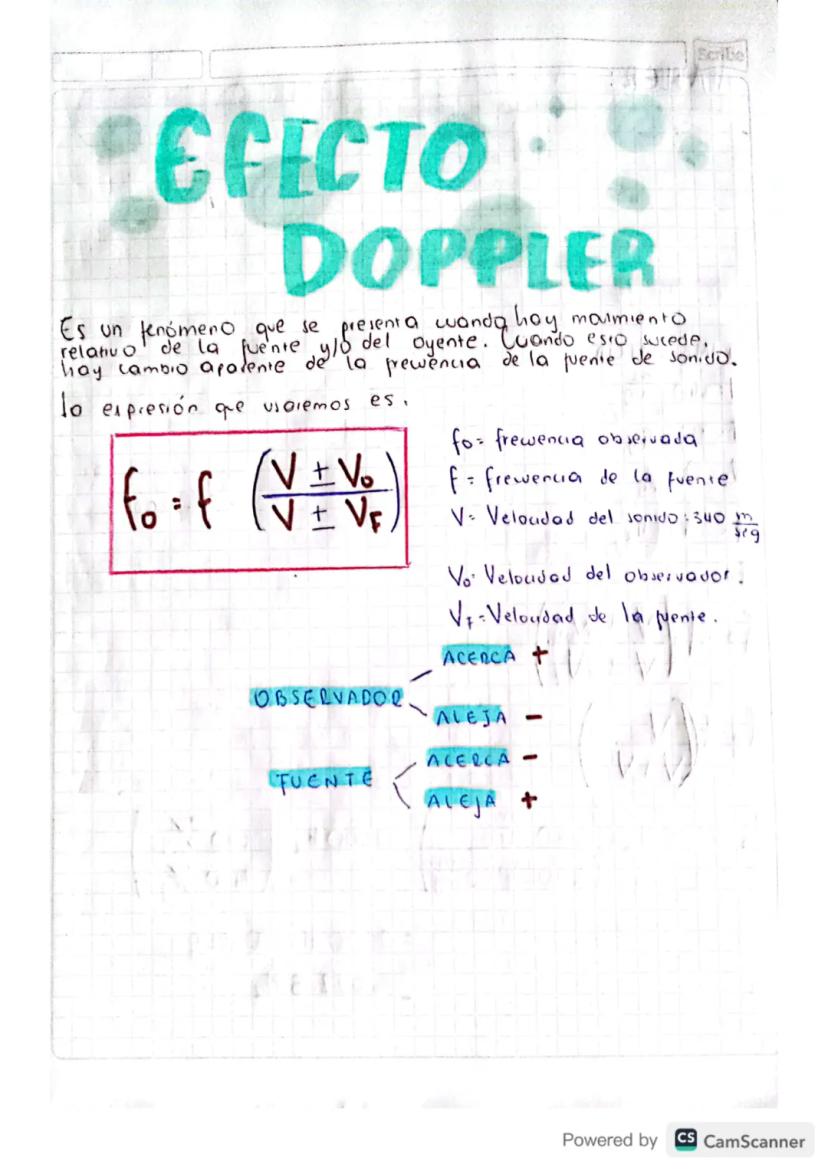 Scribe
EFECTO
DOPPLER
Es un fenómeno que se presenta cuando hay movimiento
relativo de la fuente y/o del oyente. Cuando esto sucede,
hay cambio aparente de la frecuencia de la fuente de sonido.
la expresión que usaremos es.
fo = f (V ± Vo / V ± VF)
fo = frecuencia observada
f = frecuencia de la fuente
V = Velocidad del sonido: 340 m/seg
Vo = Velocidad del observador.
VF = Velocidad de la fuente.
OBSERVADOR
ACERCA +
ALEJA -
FUENTE
ACERCA -
ALEJA +
Powered by CS CamScanner